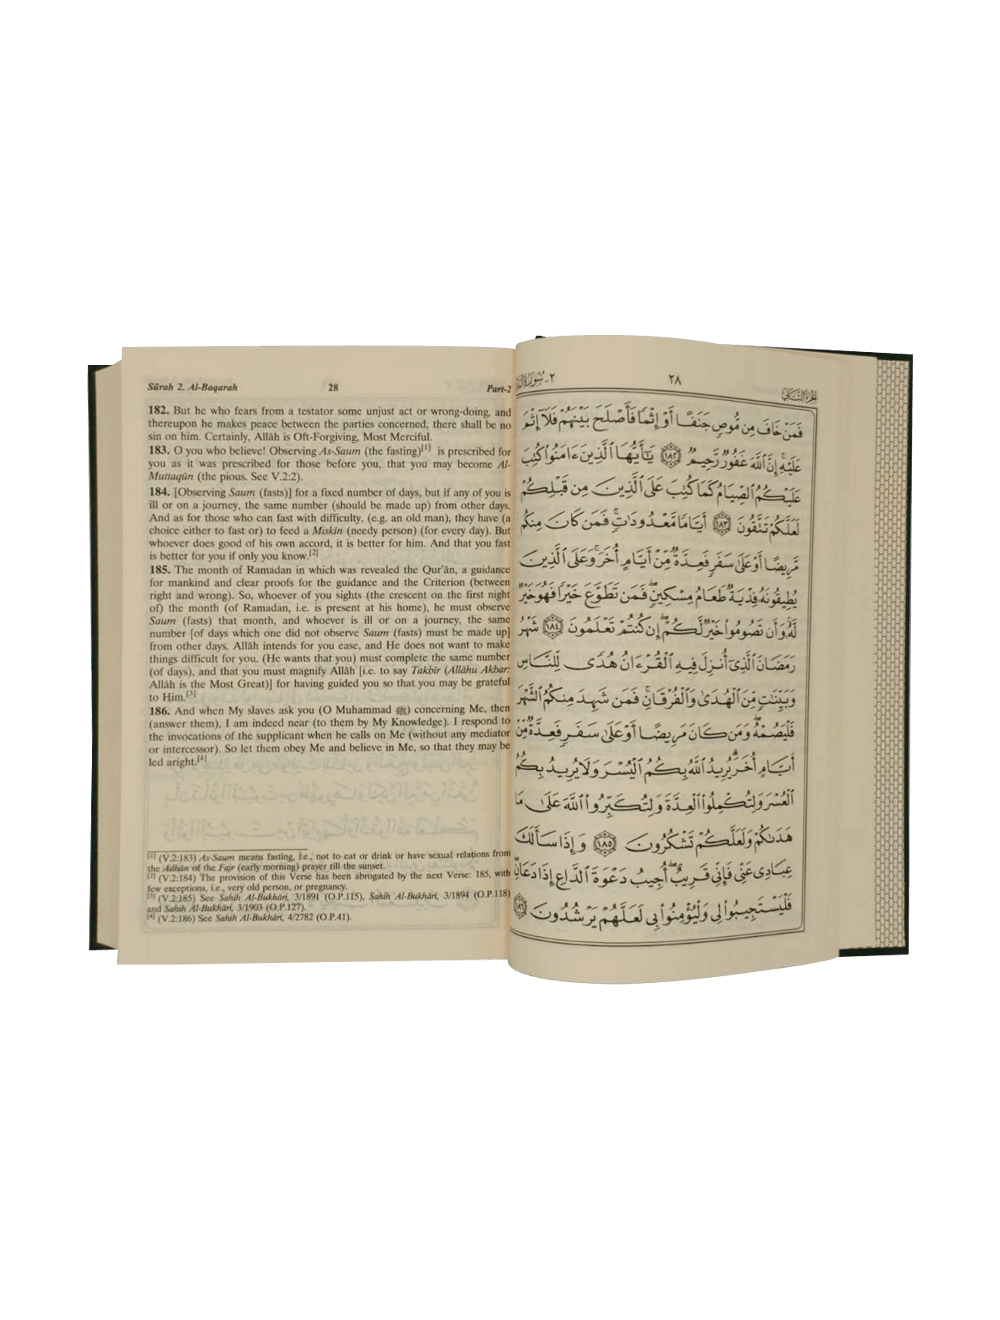 Sûrah 2. Al-Baqarah 28 Part-2
182. But he who fears from a testator some unjust act or wrong-doing, and
thereupon he makes peace between the parties concerned, there shall be no
sin on him. Certainly, Allâh is Oft-Forgiving, Most Merciful.
183. O you who believe! Observing As-Saum (the fasting)[1] is prescribed for
you as it was prescribed for those before you, that you may become Al-
Muttaqûn (the pious. See V.2:2).
184. [Observing Saum (fasts)] for a fixed number of days, but if any of you is
ill or on a journey, the same number (should be made up) from other days.
And as for those who can fast with difficulty, (e.g. an old man), they have (a
choice either to fast or) to feed a Miskîn (needy person) (for every day). But
whoever does good of his own accord, it is better for him. And that you fast
is better for you if only you know.[2]
185. The month of Ramadan in which was revealed the Qur'ân, a guidance
for mankind and clear proofs for the guidance and the Criterion (between
right and wrong). So, whoever of you sights (the crescent on the first night
of) the month (of Ramadan, i.e. is present at his home), he must observe
Saum (fasts) that month, and whoever is ill or on a journey, the same
number [of days which one did not observe Saum (fasts) must be made up]
from other days. Allâh intends for you ease, and He does not want to make
things difficult for you. (He wants that you) must complete the same number
(of days), and that you must magnify Allâh [i.e. to say Takbîr (Allâhu Akbar:
Allâh is the Most Great)] for having guided you so that you may be grateful
to Him.[3]
186. And when My slaves ask you (O Muhammad ﷺ) concerning Me, then
(answer them), I am indeed near (to them by My Knowledge). I respond to
the invocations of the supplicant when he calls on Me (without any mediator
or intercessor). So let them obey Me and believe in Me, so that they may be
led aright.[4]
[1] (V.2:183) As-Saum means fasting, i.e., not to eat or drink or have sexual relations from
the Adhân of the Fajr (early morning) prayer till the sunset.
[2] (V.2:184) The provision of this Verse has been abrogated by the next Verse: 185, with
few exceptions, i.e., very old person, or pregnancy.
[3] (V.2:185) See Sahih Al-Bukhâri, 3/1891 (O.P.115), Sahih Al-Bukhâri, 3/1894 (O.P.118)
and Sahih Al-Bukhâri, 3/1903 (O.P.127).
[4] (V.2:186) See Sahih Al-Bukhâri, 4/2782 (O.P.41).
الجزء الثاني ٢٨ ٢- سورة
فَمَنْ خَافَ مِن مُّوصٍ جَنَفًا أَوْ إِثْمًا فَأَصْلَحَ بَيْنَهُمْ فَلَآ إِثْمَ
عَلَيْهِ إِنَّ ٱللَّهَ غَفُورٌ رَّحِيمٌ ١٨٢ يَٰٓأَيُّهَا ٱلَّذِينَ ءَامَنُوا۟ كُتِبَ
عَلَيْكُمُ ٱلصِّيَامُ كَمَا كُتِبَ عَلَى ٱلَّذِينَ مِن قَبْلِكُمْ
لَعَلَّكُمْ تَتَّقُونَ ١٨٣ أَيَّامًا مَّعْدُودَٰتٍ فَمَن كَانَ مِنكُم
مَّرِيضًا أَوْ عَلَىٰ سَفَرٍ فَعِدَّةٌ مِّنْ أَيَّامٍ أُخَرَ وَعَلَى ٱلَّذِينَ
يُطِيقُونَهُۥ فِدْيَةٌ طَعَامُ مِسْكِينٍ فَمَن تَطَوَّعَ خَيْرًا فَهُوَ خَيْرٌ
لَّهُۥ وَأَن تَصُومُوا۟ خَيْرٌ لَّكُمْ إِن كُنتُمْ تَعْلَمُونَ ١٨٤ شَهْرُ
رَمَضَانَ ٱلَّذِىٓ أُنزِلَ فِيهِ ٱلْقُرْءَانُ هُدًى لِّلنَّاسِ
وَبَيِّنَٰتٍ مِّنَ ٱلْهُدَىٰ وَٱلْفُرْقَانِ فَمَن شَهِدَ مِنكُمُ ٱلشَّهْرَ
فَلْيَصُمْهُ وَمَن كَانَ مَرِيضًا أَوْ عَلَىٰ سَفَرٍ فَعِدَّةٌ مِّنْ
أَيَّامٍ أُخَرَ يُرِيدُ ٱللَّهُ بِكُمُ ٱلْيُسْرَ وَلَا يُرِيدُ بِكُمُ
ٱلْعُسْرَ وَلِتُكْمِلُوا۟ ٱلْعِدَّةَ وَلِتُكَبِّرُوا۟ ٱللَّهَ عَلَىٰ مَا
هَدَىٰكُمْ وَلَعَلَّكُمْ تَشْكُرُونَ ١٨٥ وَإِذَا سَأَلَكَ
عِبَادِى عَنِّى فَإِنِّى قَرِيبٌ أُجِيبُ دَعْوَةَ ٱلدَّاعِ إِذَا دَعَانِ
فَلْيَسْتَجِيبُوا۟ لِى وَلْيُؤْمِنُوا۟ بِى لَعَلَّهُمْ يَرْشُدُونَ ١٨٦